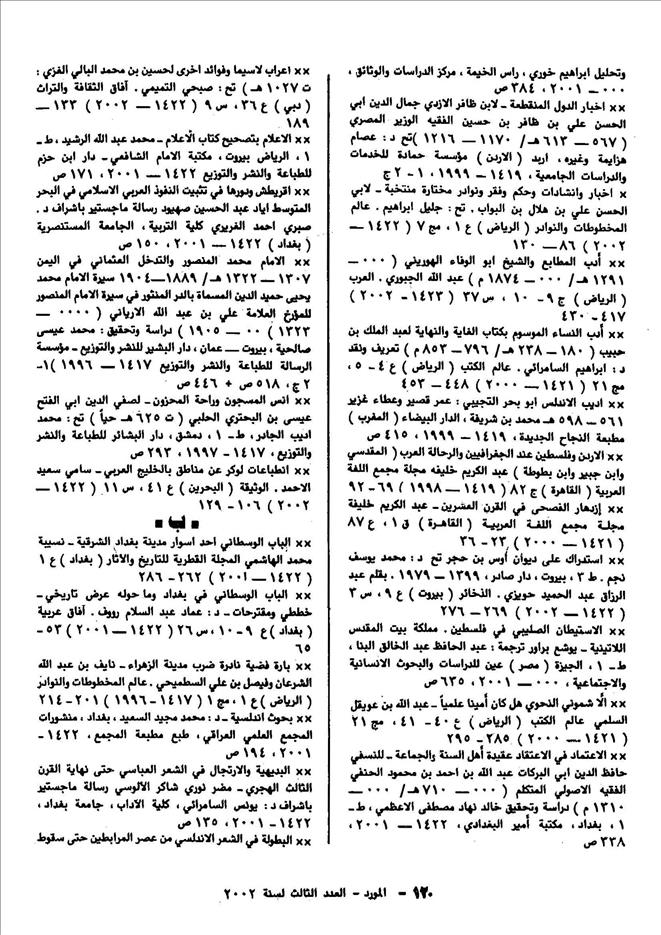 وتحليل ابراهيم خوري ، راس الخيمة ، مركز الدراسات والوثائق ،
٠٠٠ ــ ٢٠٠١ ، ٣٨٤ ص
×× اخبار الدول المنقطعة ـ لابن ظافر الازدي جمال الدين ابي
الحسن علي بن ظافر بن حسين الفقيه الوزير المصري
( ٥٦٧ ــ ٦١٣ هـ / ١١٧٠ ــ ١٢١٦ )تح د : عصام
هزايمة وغيره ، اربد ( الاردن ) مؤسسة حمادة للخدمات
والدراسات الجامعية ، ١٤١٩ ــ ١٩٩٩ ، ١ ـ ٢ ج
× اخبار وانشادات وحكم وفقر ونوادر مختارة منتخبة ـ لابي
الحسن علي بن هلال بن البواب . تح : جليل ابراهيم . عالم
المخطوطات والنوادر ( الرياض ) ع ١ ، مج ٧ ( ١٤٢٢ ــ
٢٠٠٢ ) ٨٦ ــ ١٣٠
×× أدب المطابع والشيخ ابو الوفاء الهوريني ( ٠٠٠ ــ
١٢٩١ هـ / ٠٠٠ ــ ١٨٧٤ م ) عبد الله الجبوري . العرب
( الرياض ) ج ٩ ـ ١٠ ، س ٣٧ ( ١٤٢٣ ـ ٢٠٠٢ )
٤١٧ ـ ٤٣٠
×× أدب النساء الموسوم بكتاب الغاية والنهاية لعبد الملك بن
حبيب ( ١٨٠ ــ ٢٣٨ هـ / ٧٩٦ ــ ٨٥٣ م ) تعريف ونقد
د : ابراهيم السامرائي . عالم الكتب ( الرياض ) ع ٤ ـ ٥ ،
مج ٢١ ( ١٤٢١ ــ ٢٠٠٠ ) ٤٤٨ ــ ٤٥٣
×× اديب الاندلس ابو بحر التجيبي : عمر قصير وعطاء غزير
٥٦١ ــ ٥٩٨ هـ محمد بن شريفة ، الدار البيضاء ( المغرب )
مطبعة النجاح الجديدة ، ١٤١٩ ــ ١٩٩٩ ، ٤١٥ ص
×× الاردن وفلسطين عند الجغرافيين والرحالة العرب ( المقدسي
وابن جبير وابن بطوطة ) عبد الكريم خليفه مجلة مجمع اللغة
العربية ( القاهرة ) ج ٨٢ ( ١٤١٩ ــ ١٩٩٨ ) ٦٩ ـ ٩٢
×× إزدهار الفصحى في القرن العشرين ـ عبد الكريم خليفة
مجلة مجمع اللغة العربية ( القاهرة ) ق ١ ، ع ٨٧
( ١٤٢١ ــ ٢٠٠٠ ) ٢٣ ـ ٣٦
×× استدراك على ديوان أوس بن حجر تح د : محمد يوسف
نجم . ط ٣ ، بيروت ، دار صادر ، ١٣٩٩ ــ ١٩٧٩ . بقلم عبد
الرزاق عبد الحميد حويزي . الذخائر ( بيروت ) ع ٩ ، س ٣
( ١٤٢٢ ــ ٢٠٠٢ ) ٢٦٩ ــ ٢٧٦
×× الاستيطان الصليبي في فلسطين . مملكة بيت المقدس
اللاتينية ـ يوشع براور ترجمة : عبد الحافظ عبد الخالق البنا ،
ط ـ ١ ، الجيزة ( مصر ) عين للدراسات والبحوث الانسانية
والاجتماعية ، ٠٠٠ ــ ٢٠٠١ ، ٦٣٥ ص
×× ألا شموني النحوي هل كان أمينا علمياً ـ عبد الله بن عويقل
السلمي عالم الكتب ( الرياض ) ع ٤٠ ـ ٤١ ، مج ٢١
( ١٤٢١ ــ ٢٠٠٠ ) ٢٨٥ ـ ٢٩٥
×× الاعتماد في الاعتقاد عقيدة أهل السنة والجماعة ــ للنسفي
حافظ الدين ابي البركات عبد الله بن احمد بن محمود الحنفي
الفقيه الاصولي المتكلم ( ٠٠٠ ــ ٧١٠ هـ / ٠٠٠ ــ
١٣١٠ م ) دراسة وتحقيق خالد نهاد مصطفى الاعظمي ، ط ـ
١ ، بغداد ، مكتبة أمير البغدادي ، ١٤٢٢ ــ ٢٠٠١ ،
٣٣٨ ص
×× اعراب لاسيما وفوائد اخرى لحسين بن محمد البالي الغزي :
ت ١٠٢٧ هـ ) تح : صبحي التميمي . آفاق الثقافة والتراث
( دبي ) ع ٣٦ ، س ٩ ( ١٤٢٢ ــ ٢٠٠٢ ) ١٣٣ ــ
١٨٩
×× الاعلام بتصحيح كتاب الأعلام ـ محمد عبد الله الرشيد ، ط ـ
١ ، الرياض بيروت ، مكتبة الامام الشافعي ـ دار ابن حزم
للطباعة والنشر والتوزيع ١٤٢٢ ــ ٢٠٠١ ، ١٧١ ص
×× اقريطش ودورها في تثبيت النفوذ العربي الاسلامي في البحر
المتوسط اياد عبد الحسين صهيود رسالة ماجستير باشراف د .
صبري احمد الغريري كلية التربية ، الجامعة المستنصرية
( بغداد ) ١٤٢٢ ــ ٢٠٠١ ، ١٥٠ ص
×× الامام محمد المنصور والتدخل العثماني في اليمن
١٣٠٧ ــ ١٣٢٢ هـ / ١٨٨٩ ــ ١٩٠٤ سيرة الامام محمد
يحيى حميد الدين المسماة بالدر المنثور في سيرة الامام المنصور
للمؤرخ العلامة علي بن عبد الله الارياني ( ٠٠٠٠ ــ
١٣٢٣ ) ٠٠ ــ ١٩٠٥ ) دراسة وتحقيق : محمد عيسى
صالحية ، بيروت ــ عمان ، دار البشير للنشر والتوزيع ـ مؤسسة
الرسالة للطباعة والنشر والتوزيع ١٤١٧ ــ ١٩٩٦ )١ـ
٢ ج ، ٥١٨ ص + ٤٤٦ ص
×× انس المسجون وراحة المحزون ـ لصفي الدين ابي الفتح
عيسى بن البحتري الحلبي ( ت ٦٢٥ هـ حياً ) تح : محمد
اديب الجادر ، ط ـ ١ ، دمشق ، دار البشائر للطباعة والنشر
والتوزيع ، ١٤١٧ ـ ١٩٩٧ ، ٢٩٣ ص
×× انطباعات لوكر عن مناطق بالخليج العربي ـ سامي سعيد
الاحمد . الوثيقة ( البحرين ) ع ٤١ ، س ١١ ( ١٤٢٢ ــ
٢٠٠٢ ) ١٠٦ ـ ١٢٩
■ ب ■
×× الباب الوسطاني احد اسوار مدينة بغداد الشرقية ـ نسيبة
محمد الهاشمي المجلة القطرية للتاريخ والآثار ( بغداد ) ع ١
( ١٤٢٢ ــ ٢٠٠١ ) ٢٦٢ ـ ٢٨٦
×× الباب الوسطاني في بغداد وما حوله عرض تاريخي ـ
خططي ومقترحات ـ د : عماد عبد السلام رووف . آفاق عربية
( بغداد ) ع ٩ ـ ١٠ ، س ٢٦ ( ١٤٢٢ ــ ٢٠٠١ ) ٥٣ ـ
٦٥
×× بارة فضية نادرة ضرب مدينة الزهراء ـ نايف بن عبد الله
الشرعان وفيصل بن علي السطميحي . عالم المخطوطات والنوادر
( الرياض ) ع ١ ، مج ١ ( ١٤١٧ ـ ١٩٩٦ ) ٢٠١ ـ ٢١٤
×× بحوث اندلسية ـ د : محمد مجيد السعيد ، بغداد ، منشورات
المجمع العلمي العراقي ، طبع مطبعة المجمع ، ١٤٢٢ ـ
٢٠٠١ ، ١٩٤ ص
×× البديهية والارتجال في الشعر العباسي حتى نهاية القرن
الثالث الهجري ـ مضر نوري شاكر الآلوسي رسالة ماجستير
باشراف د : يونس السامرائي ، كلية الآداب ، جامعة بغداد ،
١٤٢٢ ـ ٢٠٠١ ، ١٣٥ ص
×× البطولة في الشعر الاندلسي من عصر المرابطين حتى سقوط
١٢٠ ـ المورد ـ العدد الثالث لسنة ٢٠٠٢